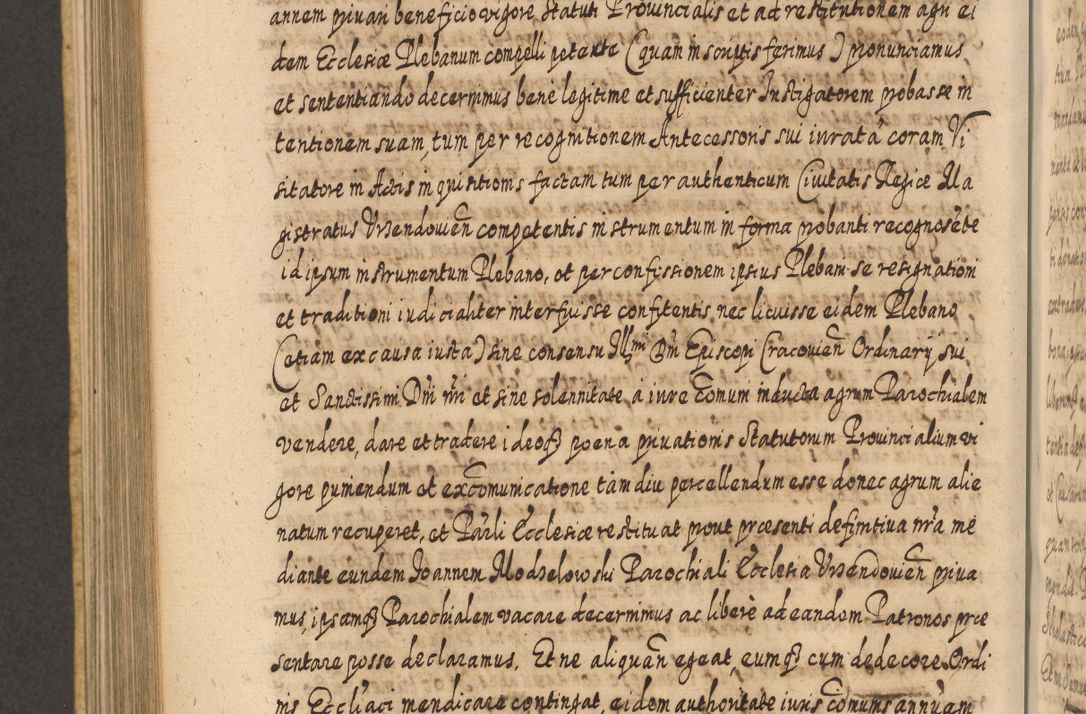 annem privari beneficio vigore Statuti Provincialis et ad restitutionem agri ei
dem Ecclesiæ Plebanum compelli petente (quam in scriptis ferimus) pronunciamus
et sententiando decernimus bene legitime et sufficienter Instigatorem probasse in
tentionem suam, tum per recognitionem Antecessoris sui iurata coram Vi
sitatore in Actis inquisitionis factam tum per authenticum Civitatis Regiæ Ma
gistratus Vrzendovien̄ competentis instrumentum in forma probanti recognoscēte
idipsum instrumentum Plebano, et per confessionem ipsius Plebani se resignationi
et traditioni iudicialiter interfuisse confitentis, nec licuisse eidem Plebano
(etiam ex causa iusta) sine consensu Illmi Dn̄i Episcopi Cracovien̄ Ordinarij sui
et Sanctissimi Dn̄i nr̄i et sine solennitate a iure Com̄uni inducta agrum Parochialem
vendere, dare et tradere ideoq3 poena privationis Statutorum Provincialium vi
gore puniendum et excom̄unicatione tam diu percellendum esse donec agrum alie
natum recuperet, et Par̄li Ecclesiæ restituat prout præsenti definitiva nr̄a me
diante eundem Ioannem Modzelowski Parochiali Ecclesia Vrzendovien̄ priva
mus, ipsamq3 Parochialem vacare decernimus ac liberè ad eandem Patronos præ
sentare posse declaramus. Et ne aliquan̄ egeat, eumq3 cum dedecore Ordi
nis Eccl̄iaci mendicare contingat, eidem authoritate iuris com̄unis annuam